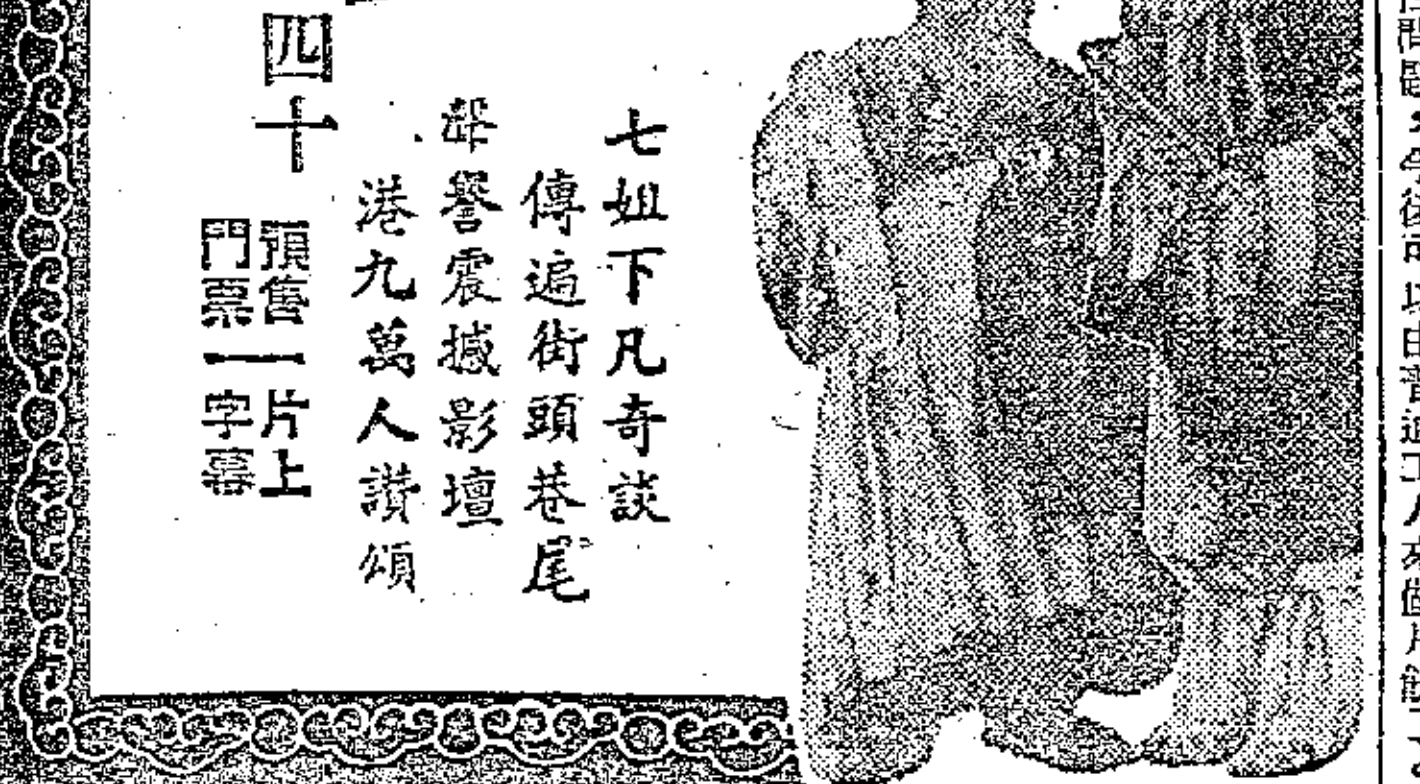 七姐下凡奇談
傳遍街頭巷尾
聲譽震撼影壇
港九萬人讚頌
四十
預售一片上
門票一字幕